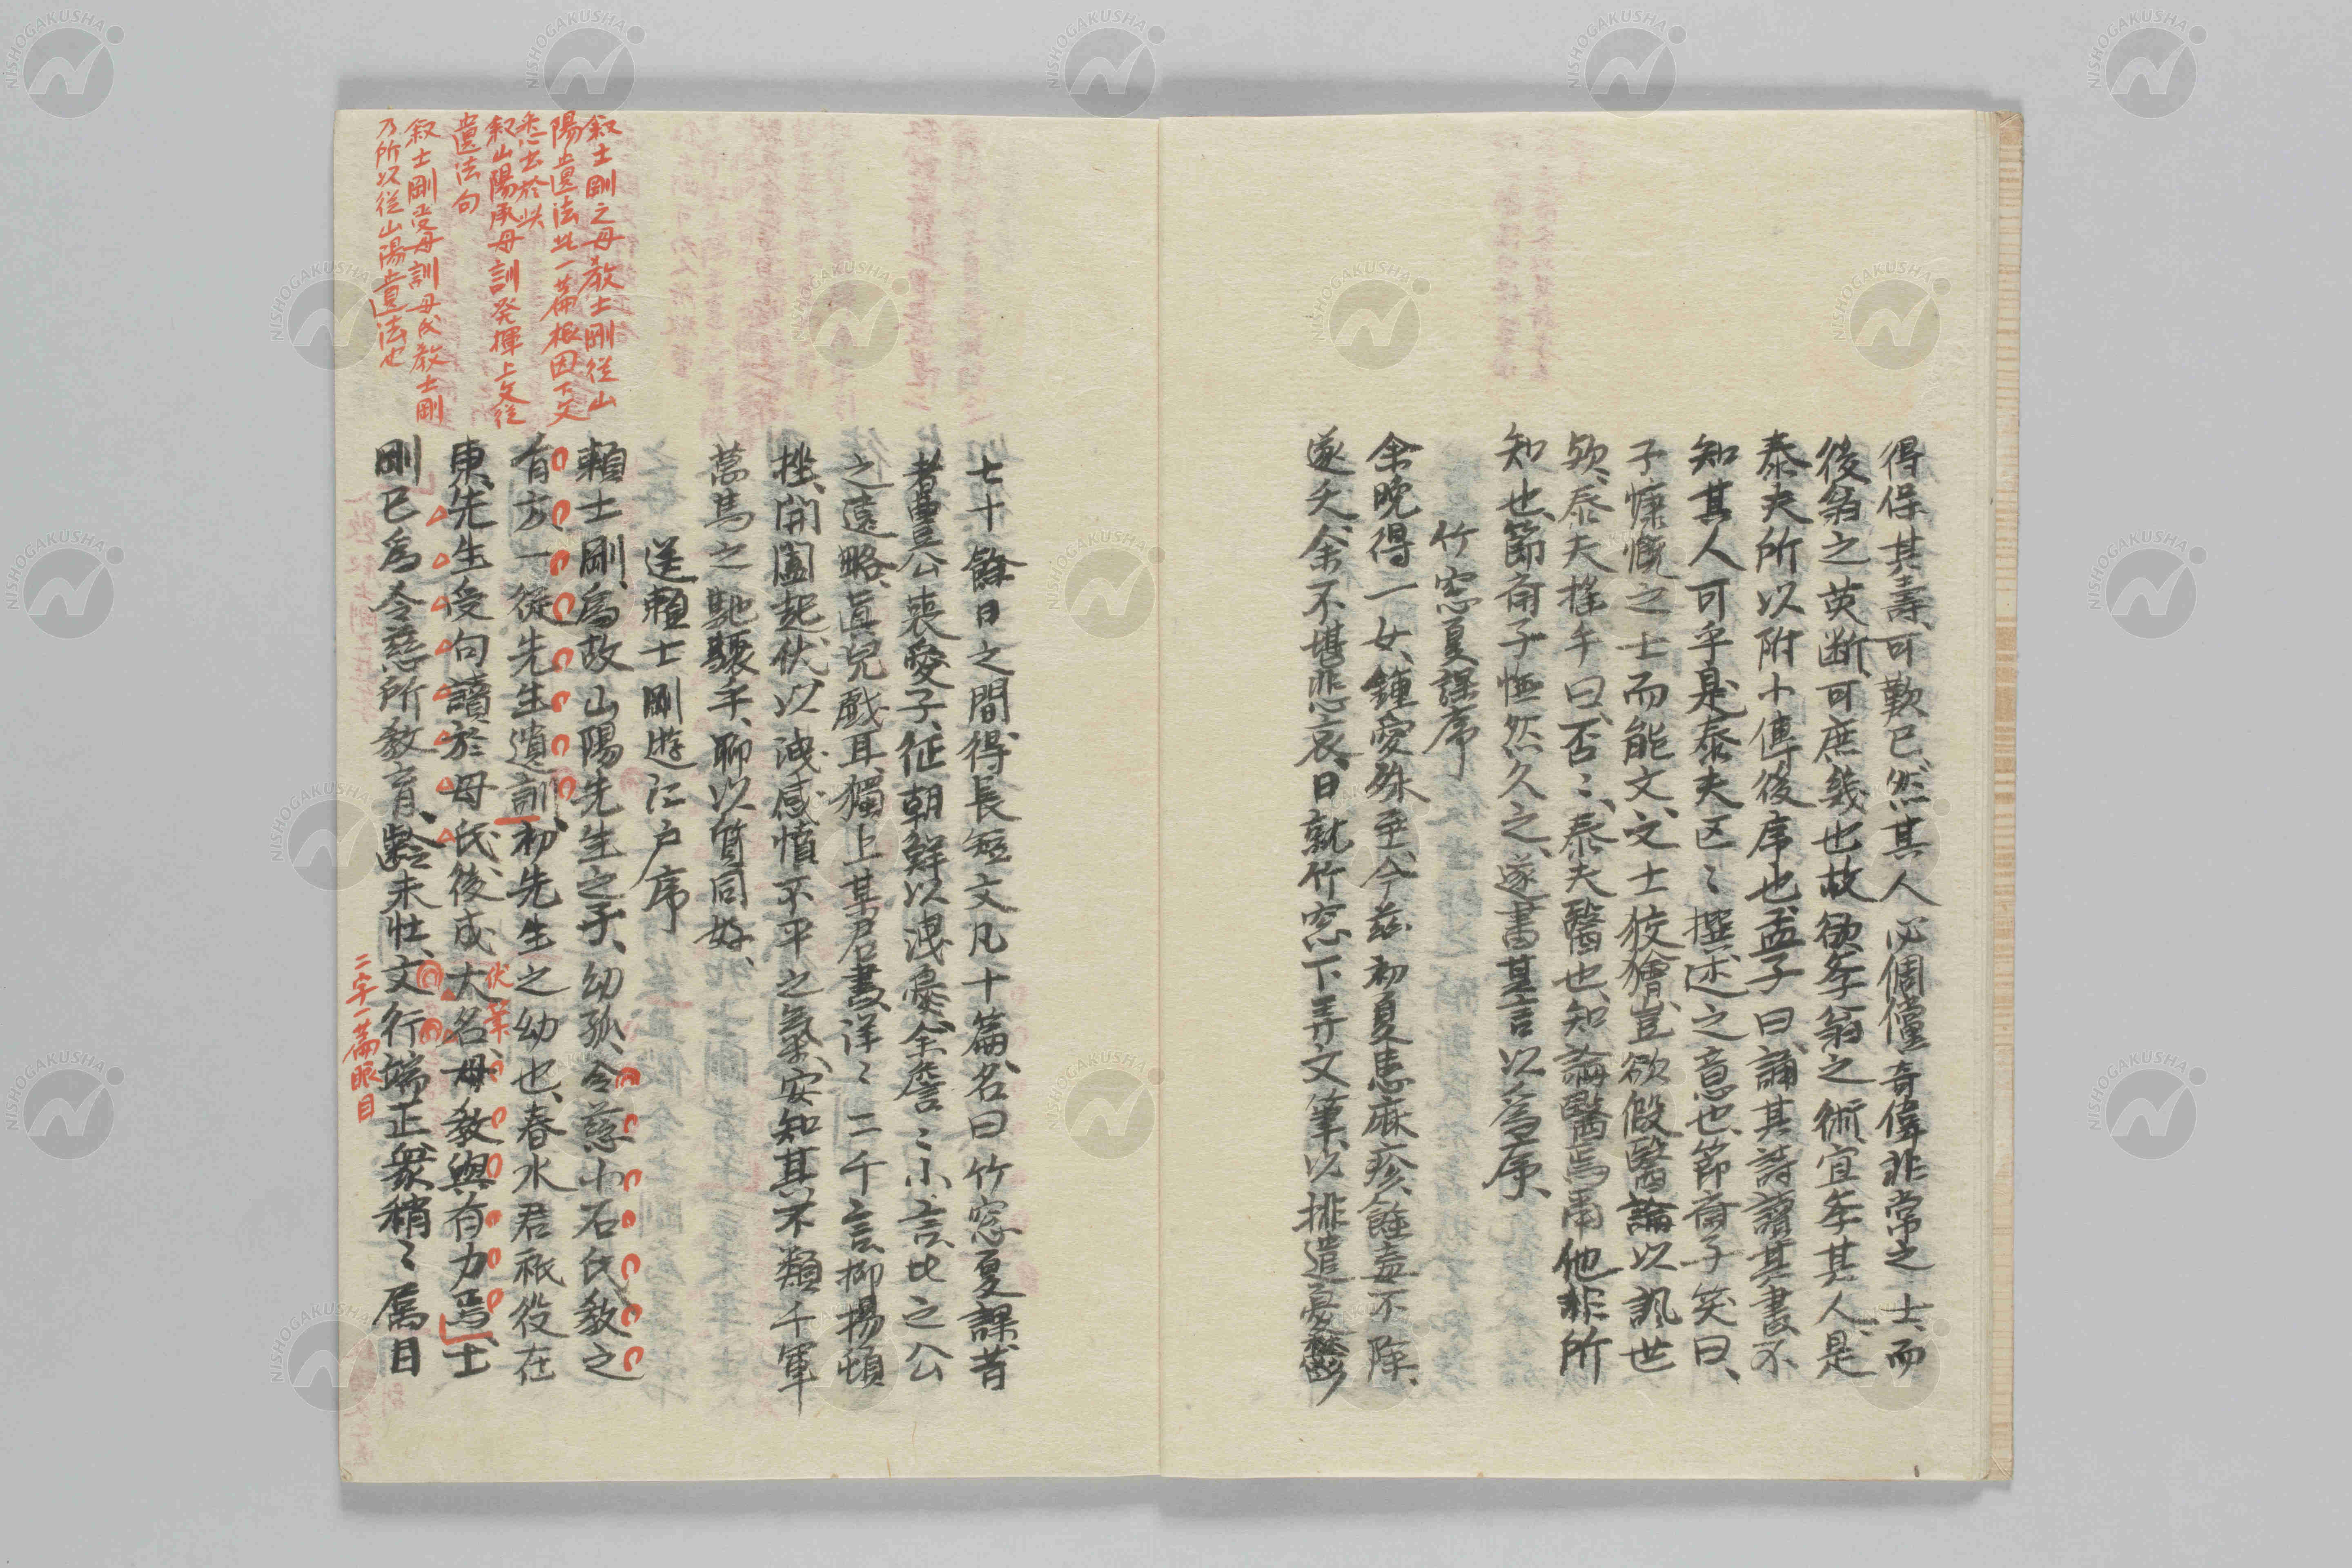 得保其壽、可歎已、然其人必倜儻奇偉非常之士、而
後翁之英断、可庶幾也、故欲学翁之術、宜学其人、是
泰夫所以附小傳後序也、孟子曰、誦其詩讀其書、不
知其人可乎、是泰夫区〻撰述之意也、節斎子笑曰、
子慷慨之士而能文、文士狡獪、豈欲假醫論以諷世
欤、泰夫搖手曰、否〻、泰夫醫也、知論醫焉耳、他非所
知也、節斎子恒然久之、遂書其言以為序、
竹窓夏課序
余晩得一女、鍾愛殊至、今茲初夏患麻疹、餘毒不除、
遂夭、余不堪悲哀、日就竹窓下弄文筆、以排遣憂鬱
七十餘日之間、得長短文凡十篇、名曰竹窓夏課、昔
者豊公喪愛子、征朝鮮以洩憂、余詹〻小言、比之公
之遠略、真兒戲耳、獨上某君書、洋〻二千言、抑揚頓
挫、開闔起伏、以洩感憤不平之氣、安知其不類千軍
萬馬之馳驟乎、聊以質同好、
送賴士剛遊江戸序
賴士剛、為故山陽先生之子、幼孤、令慈小石氏教之
有方、一従先生遺訓、初先生之幼也、春水君祇役在
東、先生受句讀於母氏、後成大名、母教與有力焉、士
剛已為令慈所教育、齡未壯、文行端正、衆稍〻属目
叙士剛之母教士剛従山
陽遺法此一篇根因下文
悉出於此
叙山陽承母訓発揮上文従
遺法句
叙士剛受母訓母氏教士剛
乃所以従山陽遺法也
伏筆
二字一篇眼目
NISHOGAKUSHA